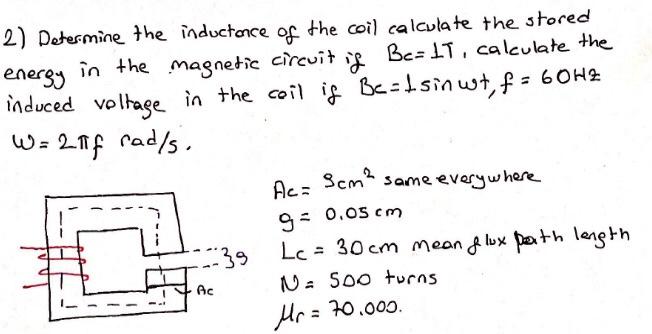 2) Determine the inductance of the coil calculate the stored
energy in the magnetic circuit if Bc=1T, calculate the
induced voltage in the coil if Bc=1sinwt, f = 60HZ
W = 2πf rad/s.
Ac = 9cm² same everywhere
g = 0,05 cm
Lc = 30 cm mean flux path length
N = 500 turns
μr = 70.000.
g
Ac